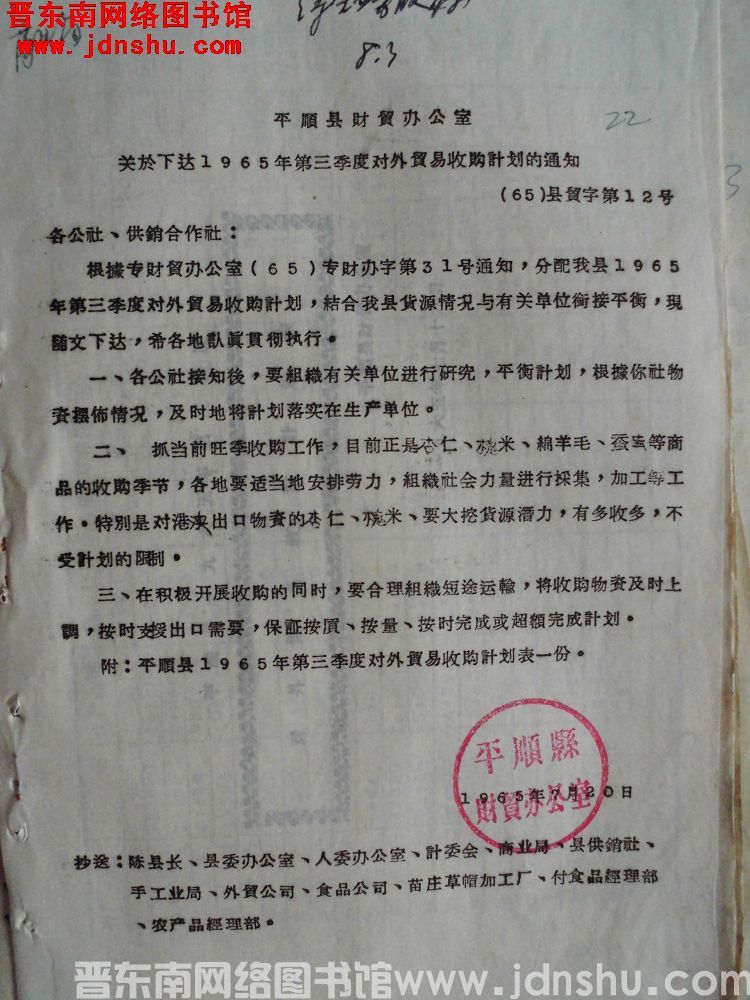 晋东南网络图书馆
www.jdnshu.com
8.3
22
平順县財貿办公室
关於下达1965年第三季度对外貿易收购計划的通知
(65)县貿字第12号
各公社、供銷合作社：
根據专財貿办公室(65)专財办字第31号通知，分配我县1965
年第三季度对外貿易收购計划，結合我县貨源情况与有关单位銜接平衡，現
随文下达，希各地訃眞貫彻执行。
一、各公社接知後，要組織有关单位进行研究，平衡計划，根據你社物
資摆佈情况，及时地将計划落实在生产单位。
二、 抓当前旺季收购工作，目前正是杏仁、桃米、綿羊毛、蚕虽等商
品的收购季节，各地要适当地安排劳力，組織社会力量进行採集，加工等工
作。特別是对港澳出口物資的杏仁、桃米、要大挖貨源潛力，有多收多，不
受計划的限制。
三、在积极开展收购的同时，要合理組織短途运輸，将收购物資及时上
調，按时支援出口需要，保証按质、按量、按时完成或超額完成計划。
附：平順县1965年第三季度对外貿易收购計划表一份。
平順縣
財貿办公室
1965年7月20日
抄送：陈县长、县委办公室、人委办公室、計委会、商业局、县供銷社、
手工业局、外貿公司、食品公司、苗庄草帽加工厂、付食品經理部
、农产品經理部。
晋东南网络图书馆www.jdnshu.com